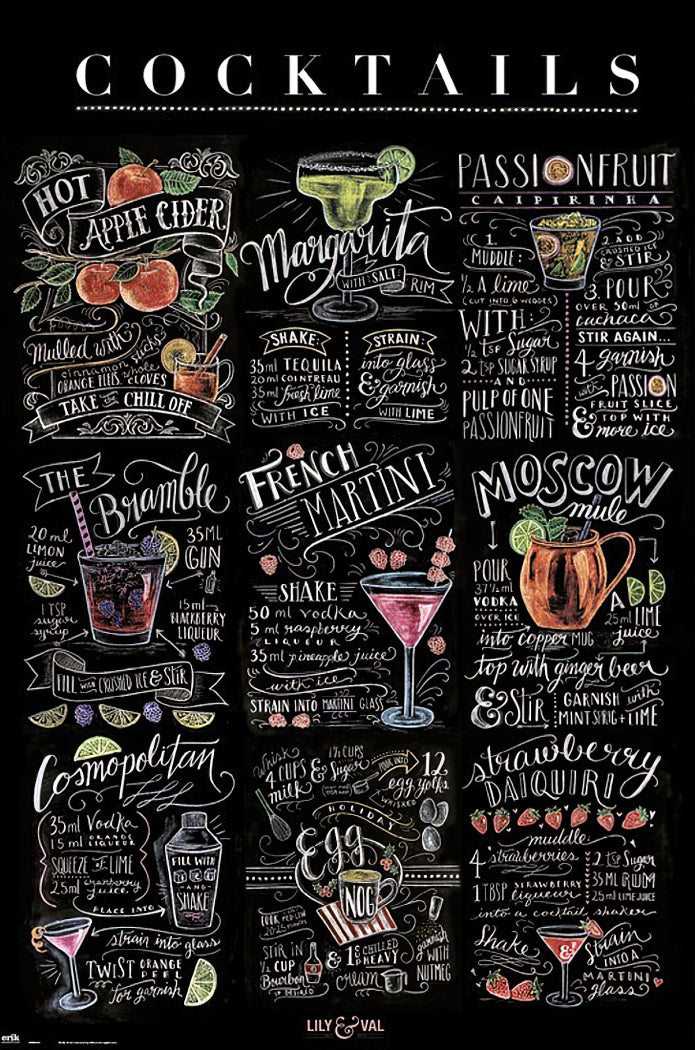 COCKTAILS
HOT
APPLE CIDER
Mulled with
cinnamon sticks
ORANGE PEEL whole CLOVES
TAKE THE CHILL OFF
Margarita
WITH SALT RIM
SHAKE:
35ml TEQUILA
20ml COINTREAU
35ml fresh lime
WITH ICE
STRAIN:
into glass
& garnish
WITH LIME
PASSIONFRUIT
CAIPIRINHA
1.
MUDDLE:
1/2 A lime
(CUT INTO 6 WEDGES)
WITH:
1/2 tsp Sugar
2 tsp SUGAR SYRUP
AND
PULP OF ONE
PASSIONFRUIT
2. ADD
CRUSHED ICE
& STIR
3. POUR
OVER 50ml OF
cachaca
STIR AGAIN...
4 garnish
with PASSION
FRUIT SLICE
& TOP WITH
more ice
THE
Bramble
20 ml
LEMON
juice
1 TSP
sugar
syrup
35ML
GIN
15ml
BLACKBERRY
LIQUEUR
FILL WITH CRUSHED ICE & STIR
FRENCH
MARTINI
SHAKE
50 ml vodka
5 ml raspberry
LIQUEUR
35ml pineapple juice
with ice
STRAIN INTO MARTINI GLASS
MOSCOW
mule
POUR
37 1/2 ml
VODKA
OVER ICE
into copper MUG
A
25ml LIME
juice
top with ginger beer
& STIR
GARNISH with
MINT SPRIG + LIME
Cosmopolitan
35ml Vodka
15ml ORANGE
LIQUEUR
SQUEEZE OF LIME
25ml cranberry
juice
PLACE INTO
FILL WITH
ICE
AND
SHAKE
strain into glass
TWIST ORANGE
PEEL
for garnish
Whisk
4 CUPS
milk
&
1 1/2 CUPS
Sugar
12
egg yolks
WHISKED
HOLIDAY
Egg
NOG
STIR IN
1/2 CUP
Bourbon
& 1
CHILLED
HEAVY
cream
garnish
WITH
NUTMEG
strawberry
DAIQUIRI
muddle
4 strawberries
1 TBSP STRAWBERRY
liqueur
2 tsp Sugar
35ML RUM
25ml LIME JUICE
into a cocktail shaker
Shake
&
Strain
INTO A
MARTINI
glass
erik
LILY & VAL